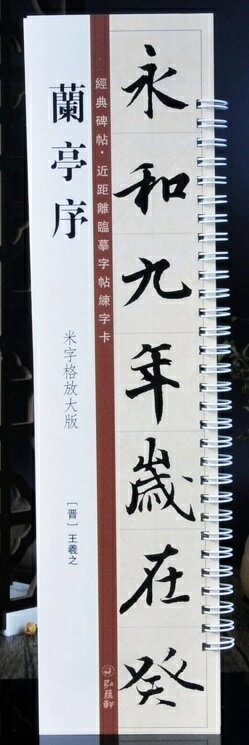 永和九年歲在癸
經典碑帖·近距離臨摹字帖練字卡
弘蘊軒
蘭亭序
米字格放大版
［晋］王羲之